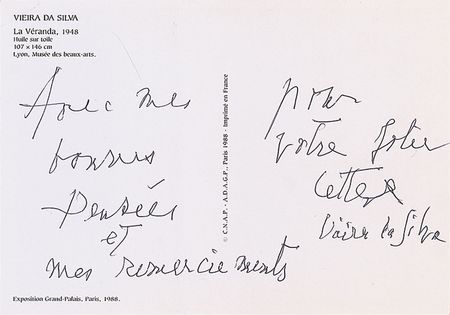 VIEIRA DA SILVA
La Véranda, 1948
Huile sur toile
107 × 146 cm
Lyon, Musée des beaux-arts.
Avec mes
bonnes
pensées
et
mes remerciements
© C.N.A.P. - A.D.A.G.P., Paris 1988 - Imprimé en France
pour
votre jolie
lettre
Vieira da Silva
Exposition Grand-Palais, Paris, 1988.